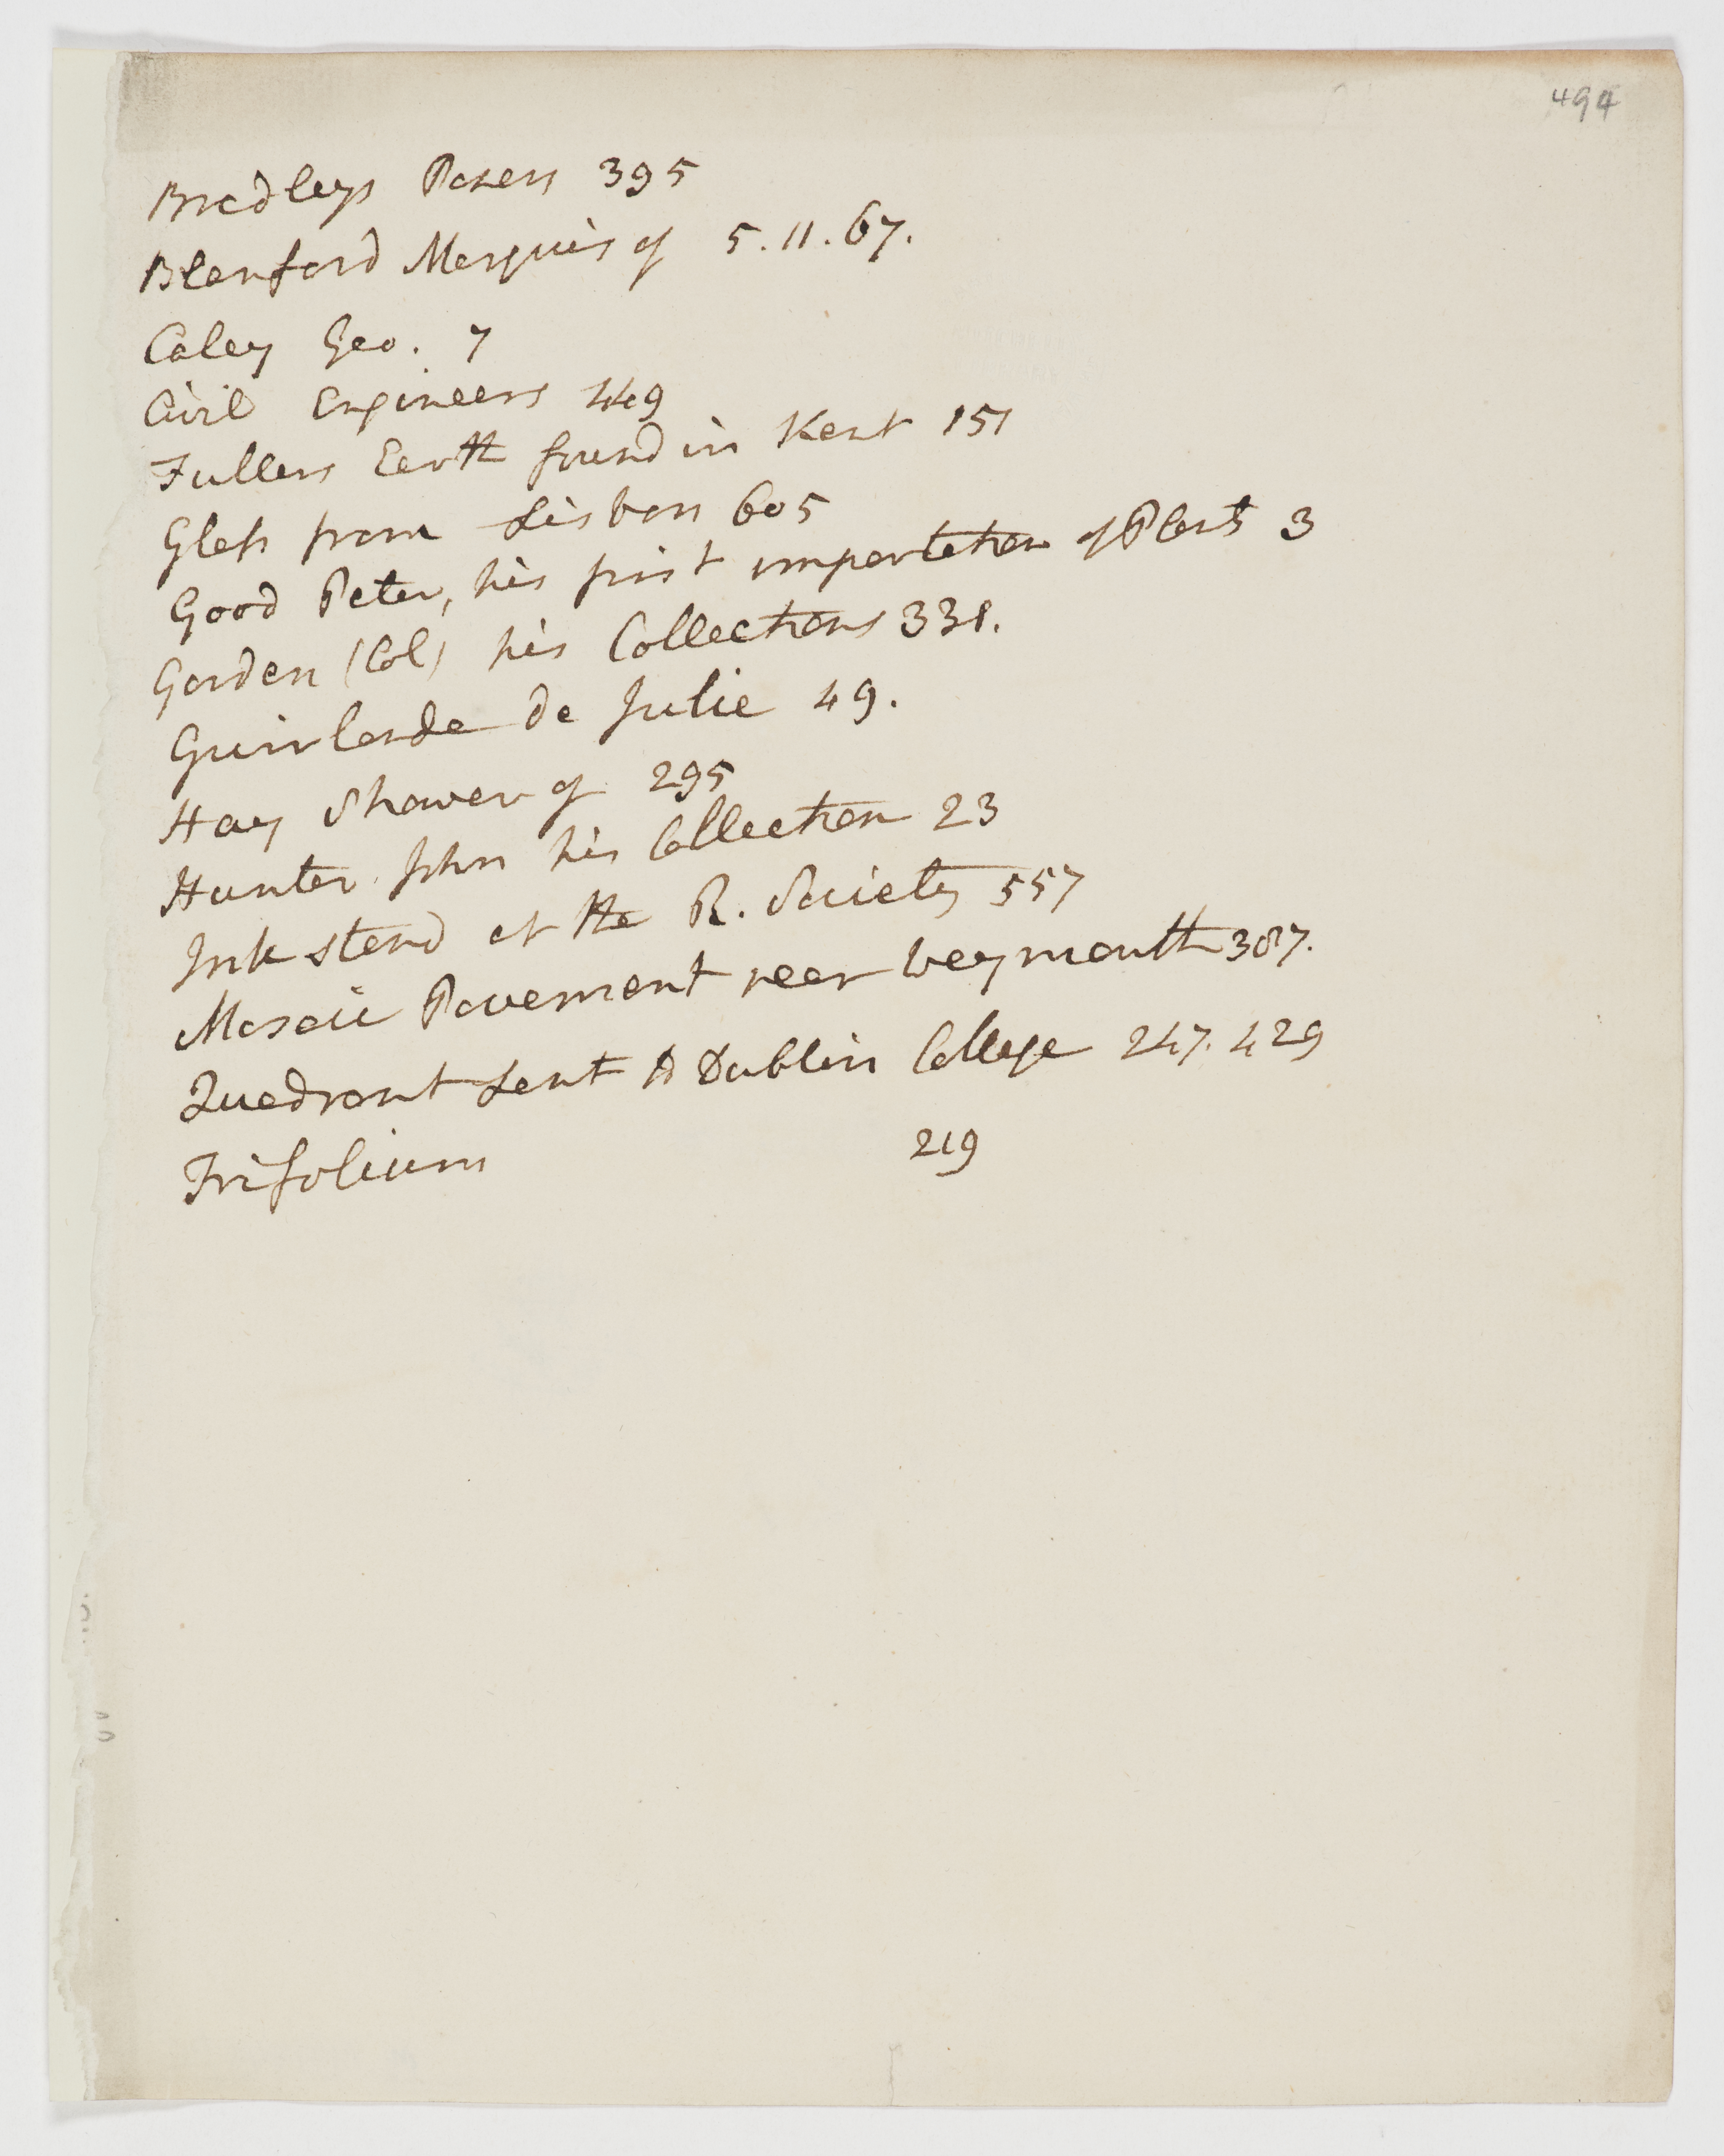 494
Bradleys Papers 395
Blanford Marquis of 5. 11. 67.
Caley Geo. 7
Civil Engineers 449
Fullers Earth found in Kent 151
Glass from Lisbon 605
Good Peter, his first importation of Plants 3
Gorden (Col) his Collections 331.
Guirlande de Julie 49.
Hay Shower of 295
Hunter John his Collection 23
Ink stand at the R. Society 557
Mosaic Pavement near Weymouth 387.
Quadrant Lent to Dublin College 247. 429
Trifolium 219